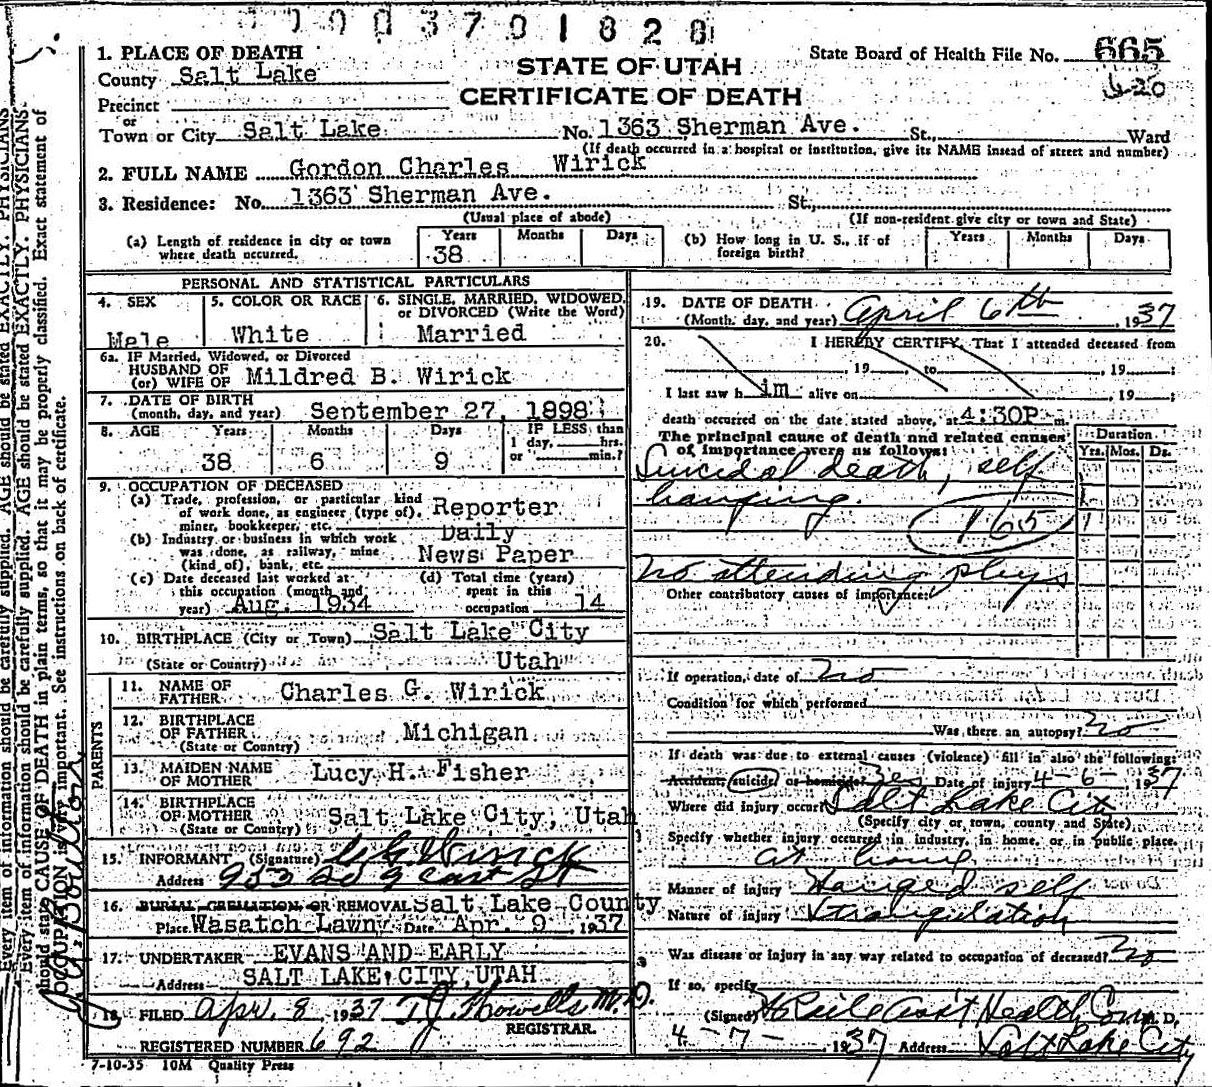 0003701820
1. PLACE OF DEATH
State Board of Health File No. 665
County Salt Lake
STATE OF UTAH
Precinct
CERTIFICATE OF DEATH
or
Town or City Salt Lake No. 1363 Sherman Ave. St., Ward
(If death occurred in a hospital or institution, give its NAME insead of street and number)
2. FULL NAME Gordon Charles Wirick
3. Residence: No. 1363 Sherman Ave. St.,
(Usual place of abode) (If non-resident give city or town and State)
(a) Length of residence in city or town where death occurred. Years 38 Months Days
(b) How long in U. S., if of foreign birth? Years Months Days
PERSONAL AND STATISTICAL PARTICULARS
4. SEX Male
5. COLOR OR RACE White
6. SINGLE, MARRIED, WIDOWED, or DIVORCED (Write the Word) Married
6a. IF Married, Widowed, or Divorced
HUSBAND OF
(or) WIFE OF Mildred B. Wirick
7. DATE OF BIRTH
(month, day, and year) September 27, 1898
8. AGE Years 38 Months 6 Days 9
IF LESS than 1 day, hrs. or min.?
9. OCCUPATION OF DECEASED
(a) Trade, profession, or particular kind of work done, as engineer (type of), miner, bookkeeper, etc. Reporter
(b) Industry or business in which work was done, as railway, mine (kind of), bank, etc. Daily News Paper
(c) Date deceased last worked at this occupation (month and year) Aug. 1934
(d) Total time (years) spent in this occupation 14
10. BIRTHPLACE (City or Town) Salt Lake City
(State or Country) Utah
PARENTS
11. NAME OF FATHER Charles G. Wirick
12. BIRTHPLACE OF FATHER (State or Country) Michigan
13. MAIDEN NAME OF MOTHER Lucy H. Fisher
14. BIRTHPLACE OF MOTHER (State or Country) Salt Lake City, Utah
15. INFORMANT (Signature) C G Wirick
Address 953 So 9 East St
16. BURIAL CREMATION OR REMOVAL Salt Lake County
Place Wasatch Lawn Date Apr. 9, 1937
17. UNDERTAKER EVANS AND EARLY
Address SALT LAKE CITY, UTAH
18. FILED Apr. 8, 1937 T.J. Howells M.D.
REGISTRAR.
REGISTERED NUMBER 692
7-10-35 10M Quality Press
19. DATE OF DEATH
(Month, day, and year) April 6th, 1937
20. I HEREBY CERTIFY, That I attended deceased from
, 19 , to , 19 ;
I last saw him alive on , 19 ;
death occurred on the date stated above, at 4:30P m.
The principal cause of death and related causes of importance were as follows:
Duration
Yrs. Mos. Ds.
Suicidal death, self
hanging.
165
No attending phys
Other contributory causes of importance:
If operation, date of No
Condition for which performed
Was there an autopsy? No
If death was due to external causes (violence) fill in also the following:
Accident, suicide or homicide? Yes Date of injury 4-6-, 1937
Where did injury occur? Salt Lake City
(Specify city or town, county and State)
Specify whether injury occurred in industry, in home, or in public place.
at home
Manner of injury Hanged self
Nature of injury Strangulation
Was disease or injury in any way related to occupation of deceased? No
If so, specify
(Signed) Ass't Health Com M. D.
4-7-, 1937 Address Salt Lake City
Every item of information should be carefully supplied. AGE should be stated EXACTLY. PHYSICIANS
should state CAUSE OF DEATH in plain terms, so that it may be properly classified. Exact statement of
OCCUPATION is very important. See instructions on back of certificate.